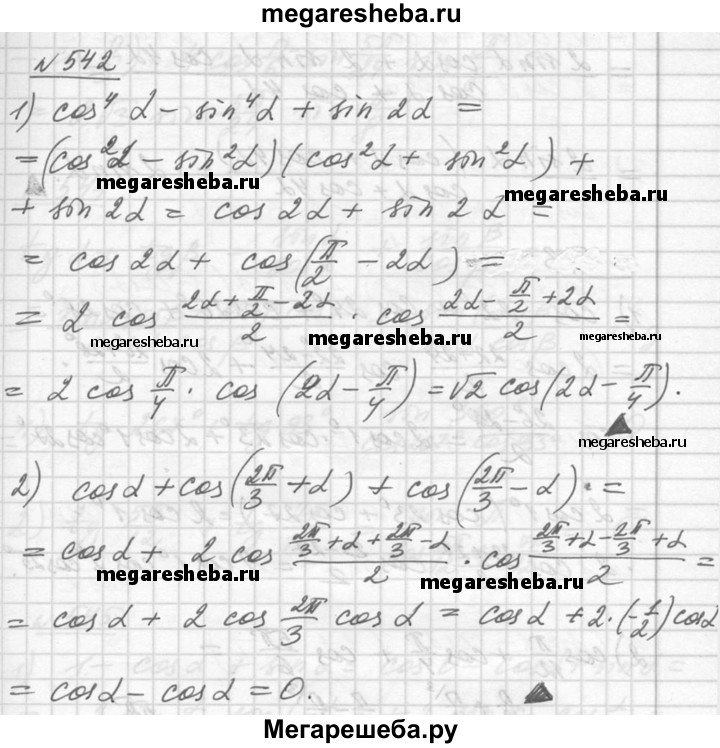 megaresheba.ru
№542
1) cos⁴α − sin⁴α + sin 2α =
= (cos²α − sin²α)(cos²α + sin²α) +
megaresheba.ru megaresheba.ru
+ sin 2α = cos 2α + sin 2α =
= cos 2α + cos(π/2 − 2α) =
= 2 cos (2α + π/2 − 2α)/2 · cos (2α − π/2 + 2α)/2 =
megaresheba.ru megaresheba.ru megaresheba.ru
= 2 cos π/4 · cos (2α − π/4) = √2 cos(2α − π/4).
megaresheba.ru
2) cosα + cos(2π/3 + α) + cos(2π/3 − α) =
= cosα + 2 cos (2π/3 + α + 2π/3 − α)/2 · cos (2π/3 + α − 2π/3 + α)/2 =
megaresheba.ru megaresheba.ru
= cosα + 2 cos 2π/3 cosα = cosα + 2·(−1/2) cosα
= cosα − cosα = 0.
Мегарешеба.ру